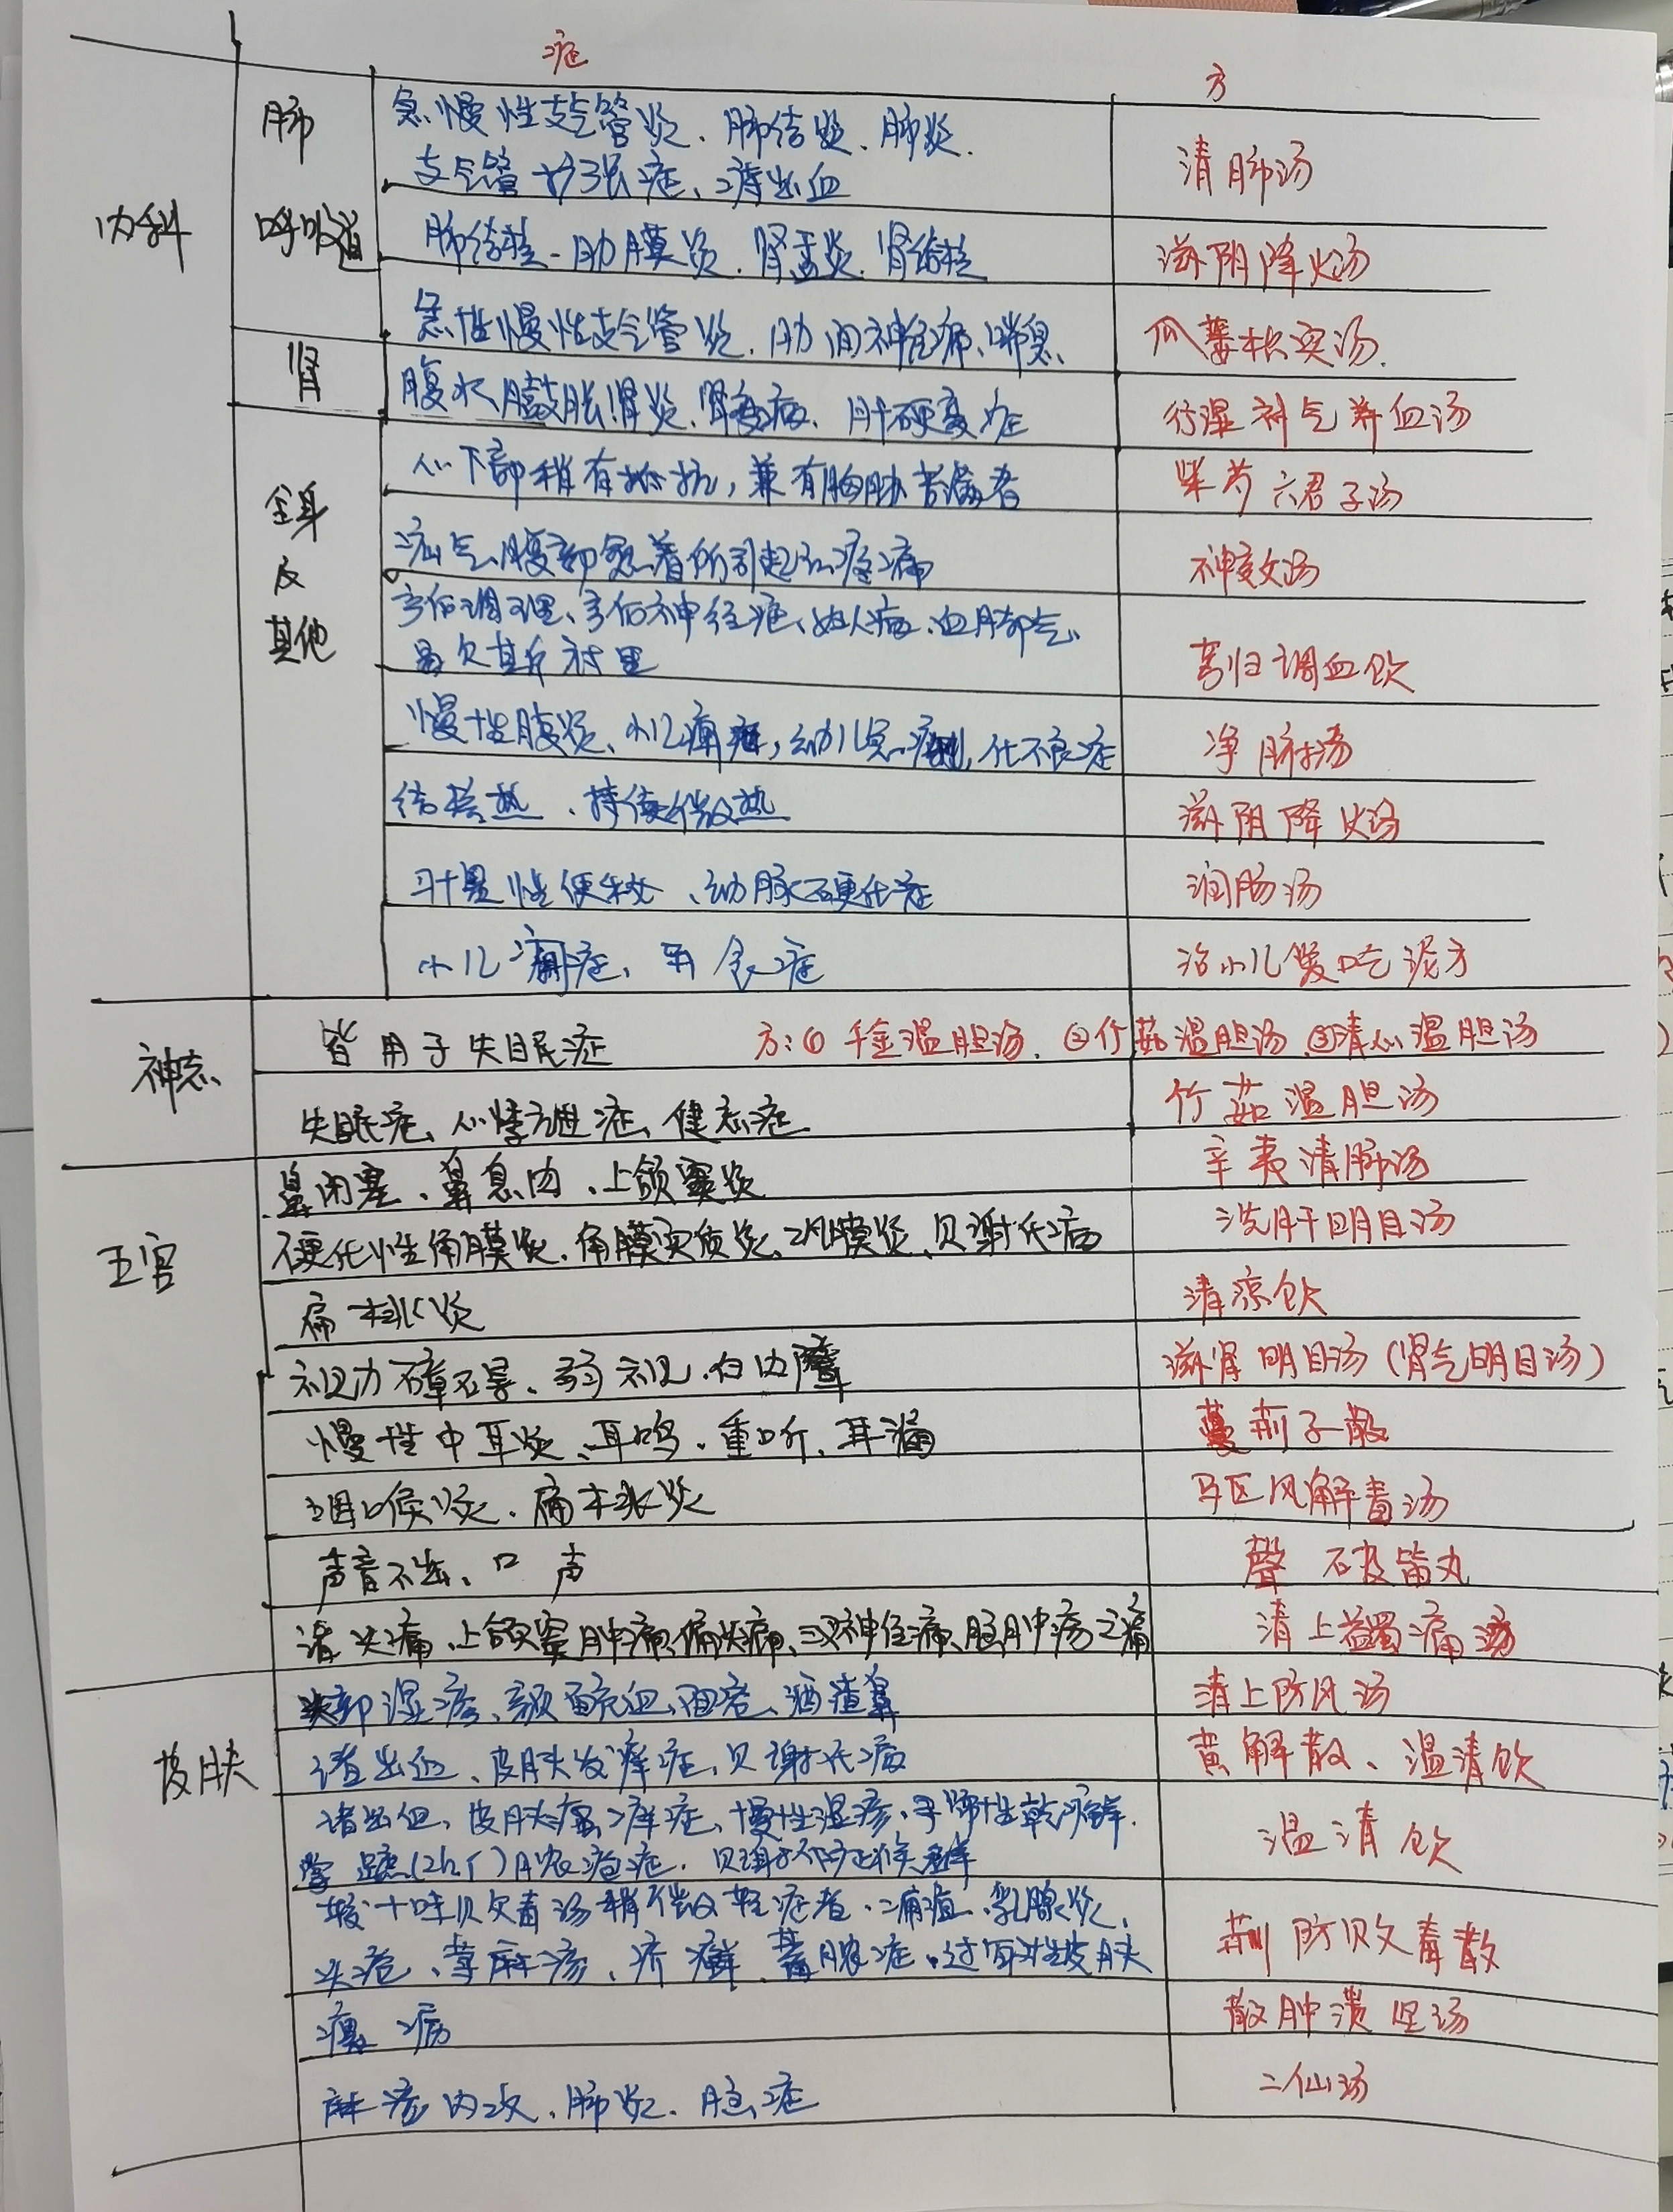 症 方
内科 肺 呼吸道
急慢性支气管炎、肺结炎、肺炎、 清肺汤
支气管扩张症、出血
肺结核、肋膜炎、肾盂炎、肾结核 滋阴降火汤
急性慢性支气管炎、肋间神经痛、喘息、 瓜蒌枳实汤
肾
腹水、膨胀、肾炎、肾病、肝硬变症 行湿补气养血汤
全身及其他
心下部稍有抵抗,兼有胸胁苦满者 柴芍六君子汤
疝气、腹部 着所引起的疼痛 神效汤
产后调理、产后神经症、妇人病、血脚气、 芎归调血饮
慢性腹炎、小儿 ,幼儿 化不良症 净腑汤
结核热、持续微热 滋阴降火汤
习惯性便秘、动脉硬化症 润肠汤
小儿 症、 食症 治小儿爱吃泥方
神志
皆用于失眠症 方:① 千金温胆汤、②竹茹温胆汤、③清心温胆汤
失眠症、心悸 症、健忘症 竹茹温胆汤
五官
鼻闭塞、鼻息肉、上颌窦炎 辛夷清肺汤
硬化性角膜炎、角膜实质炎、巩膜炎、贝谢氏病 洗肝明目汤
扁桃炎 清凉饮
视力障碍、弱视、白内障 滋肾明目汤(肾气明目汤)
慢性中耳炎、耳鸣、重听、耳漏 蔓荆子散
咽喉炎、扁桃炎 驱风解毒汤
声音不出、 声 響声破笛丸
诸头痛、上颌窦肿痛、偏头痛、三叉神经痛、脑肿疡之痛 清上蠲痛汤
皮肤
头部湿疹、颜面充血、面疮、酒渣鼻 清上防风汤
诸出血、皮肤发痒症、贝谢氏病 黄解散、温清饮
诸出血、皮肤瘙痒症、慢性湿疹、手 性乾癣、 温清饮
掌蹠 脓疱症、贝 候群
较十味败毒汤稍微轻症者、痈疽、乳腺炎、 荆防败毒散
头疮、荨麻疹、疥癣、蓄脓症、过敏性皮肤
瘰疬 散肿溃坚汤
麻疹内攻、肺炎、脑症 二仙汤